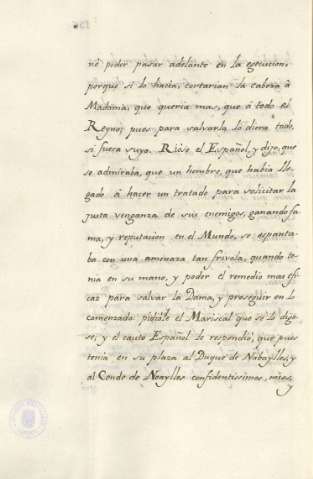 no podir pasar adelante en la esecucion,
porque si lo hacia, cortarian la cabeza á
Madama, que queria mas, que á todo el
Reyno; pues para salvarla lo diera todo,
si fuera suyo. Rióse el Español, y dijo, que
se admiraba, que un hombre, que habia lle-
gado á hacer un tratado para solicitar la
justa venganza de sus enemigos, ganando fa-
ma, y reputacion en el Mundo, se espanta-
ba con una amenaza tan frivola, quando te-
nia en su mano, y poder el remedio mas efi-
caz para salvar la Dama, y proseguir en lo
comenzado: pidióle el Mariscal que se lo dige-
se, y el cauto Español le respondió, que pues
tenia en su plaza al Duque de Nobaylles, y
al Conde de Noaylles confidentissimos,